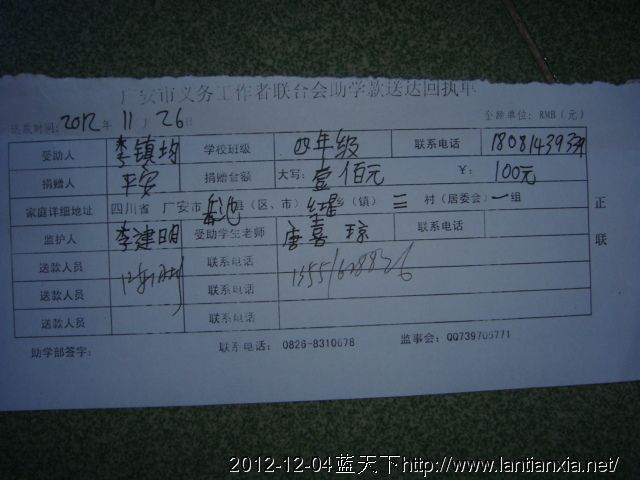 广安市义务工作者联合会助学款送达回执单
送款时间: 2012年 11月 26日 金额单位: RMB (元)
受助人 李镇均 学校班级 四年级 联系电话
捐赠人 平安 捐赠金额 大写: 壹佰元 ¥: 100元
家庭详细地址 四川省 广安市 县(区、市) (镇) 三 村(居委会) 一 组
正联
监护人 李建明 受助学生老师 唐喜琼 联系电话
送款人员 联系电话
送款人员 联系电话
送款人员 联系电话
助学部签字: 联系电话: 0826-8310678 监事会: QQ739705771
2012-12-04蓝天下http://www.lantianxia.net/